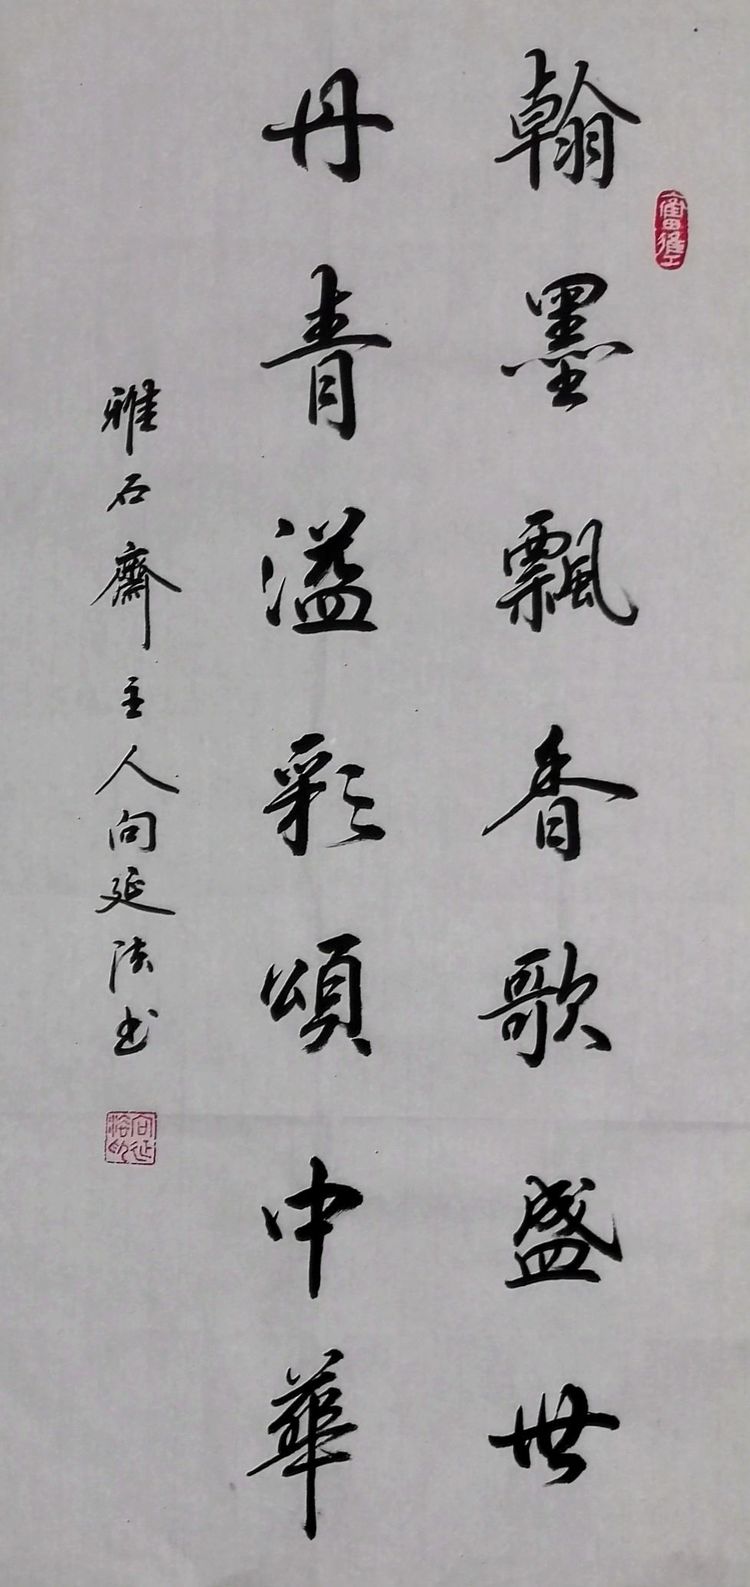 翰墨飄香歌盛世
丹青溢彩頌中華
雅石齋主人向延法书